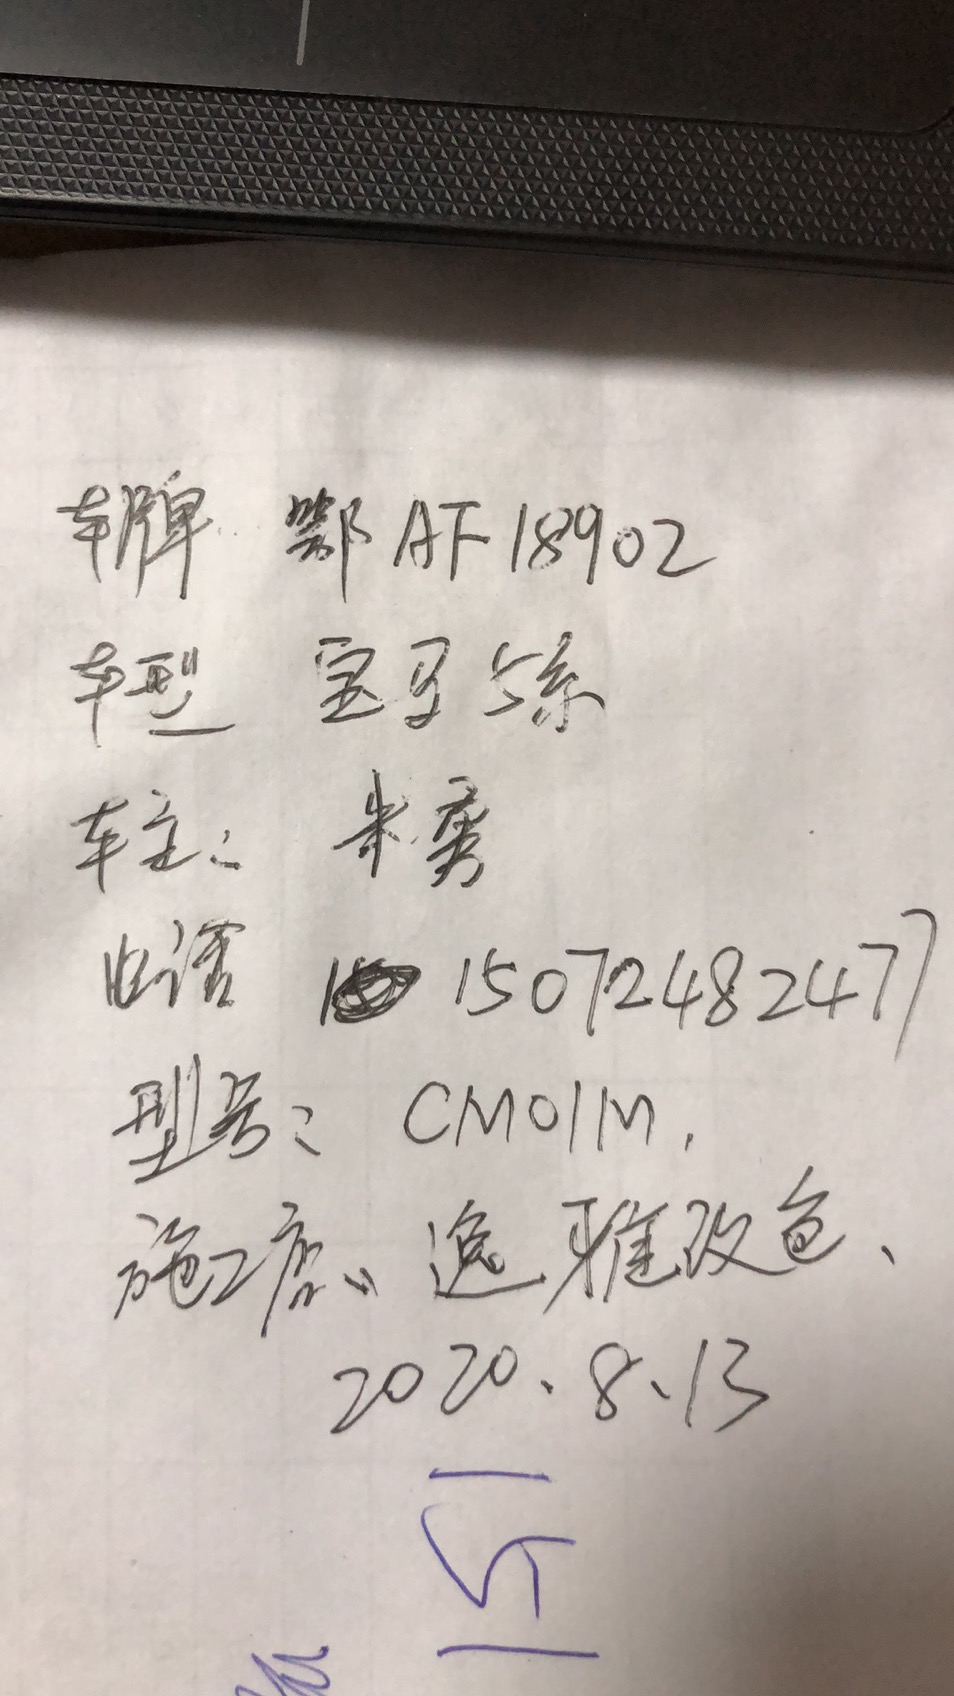 车牌 鄂AF18902
车型 宝马5系
车主:
电话 15072482477
型号: CM01M.
施工店: 逸雅改色、
2020.8.13